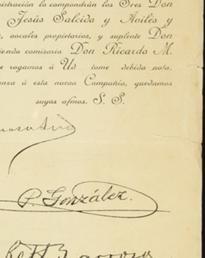 istración la compondrán los Sres Don
Jesús Salcida y Avilés y
s, vocales propietarios, y suplente Don
iendo comisario Don Ricardo M.
e rogamos á Ud tome debida nota,
anza á esta nueva Compañía, quedamos
suyos afmos. S. S.
P. González